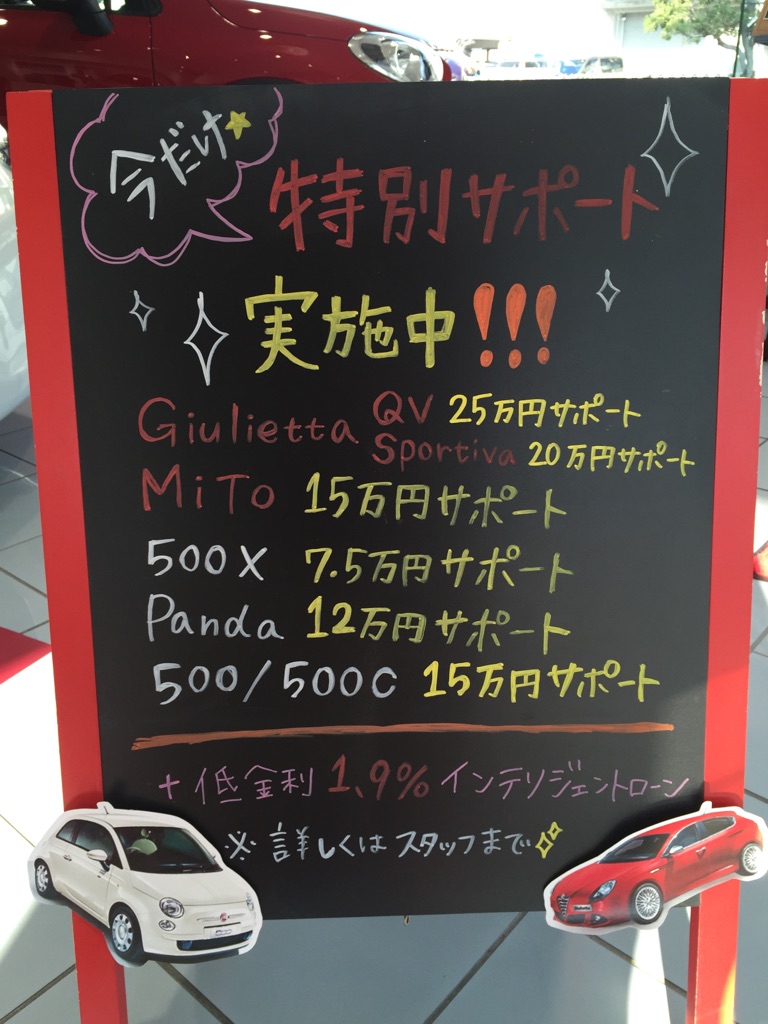 今だけ
特別サポート
実施中!!!
Giulietta QV 25万円サポート
Sportiva 20万円サポート
MiTo 15万円サポート
500X 7.5万円サポート
Panda 12万円サポート
500/500C 15万円サポート
+低金利 1.9% インテリジェントローン
※詳しくはスタッフまで